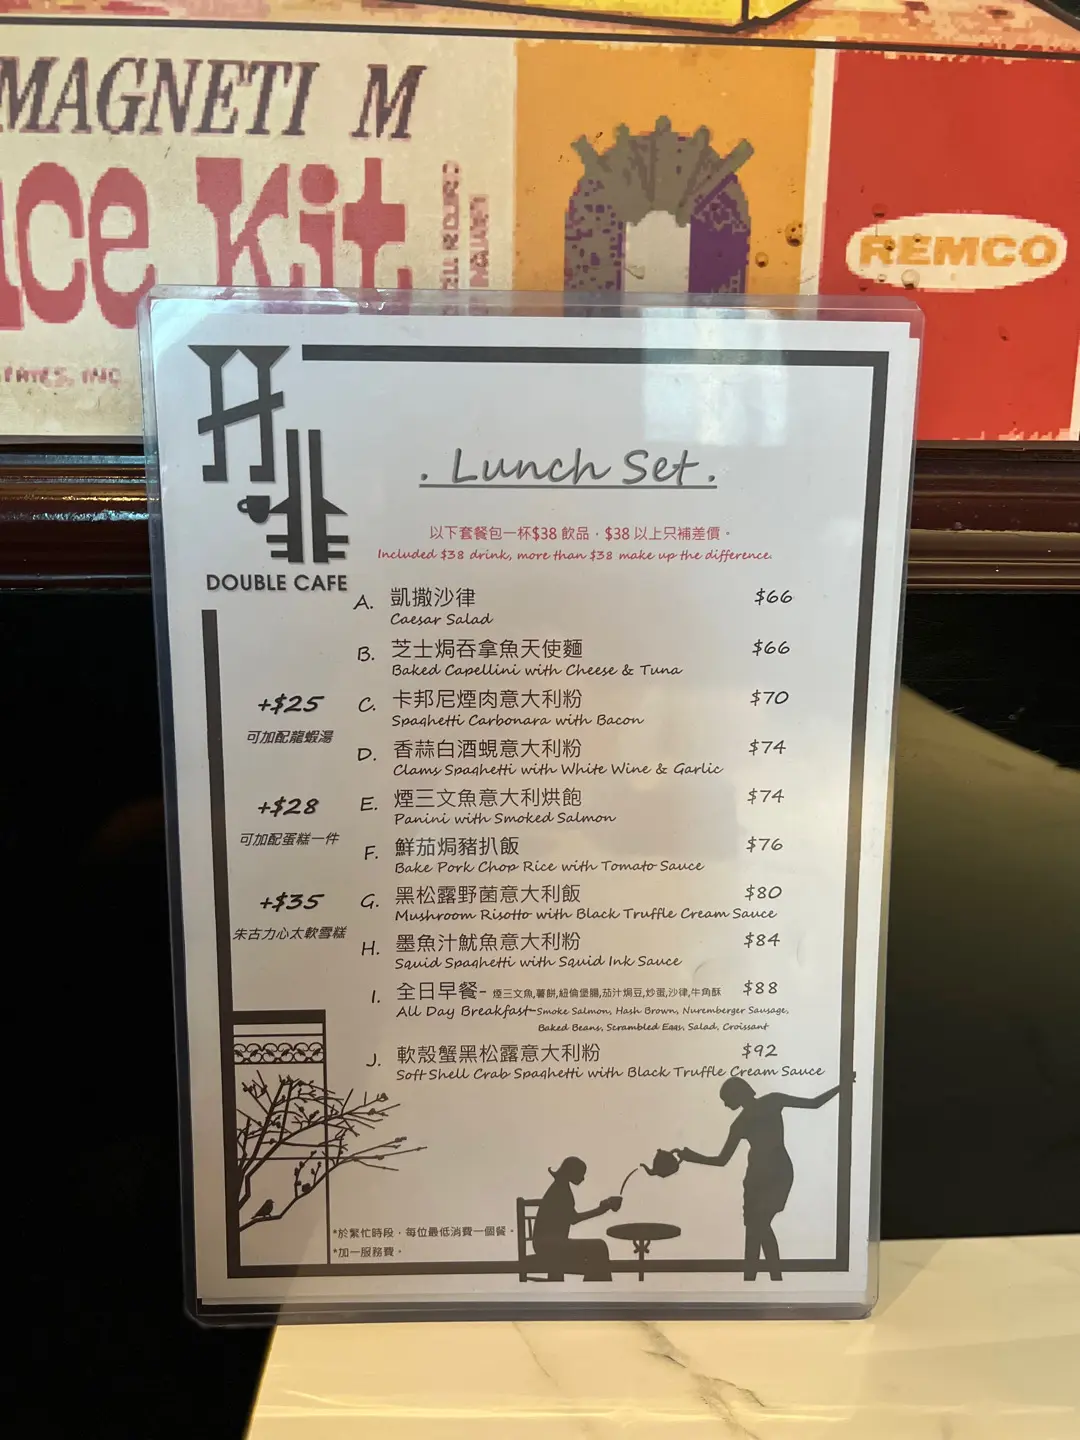 MAGNETI M
ce Kit
INC
REMCO
DOUBLE CAFE
. Lunch Set .
以下套餐包一杯$38 飲品，$38 以上只補差價。
Included $38 drink, more than $38 make up the difference.
A. 凱撒沙律 $66
Caesar Salad
B. 芝士焗吞拿魚天使麵 $66
Baked Capellini with Cheese & Tuna
C. 卡邦尼煙肉意大利粉 $70
Spaghetti Carbonara with Bacon
D. 香蒜白酒蜆意大利粉 $74
Clams Spaghetti with White Wine & Garlic
E. 煙三文魚意大利烘飽 $74
Panini with Smoked Salmon
F. 鮮茄焗豬扒飯 $76
Bake Pork Chop Rice with Tomato Sauce
G. 黑松露野菌意大利飯 $80
Mushroom Risotto with Black Truffle Cream Sauce
H. 墨魚汁魷魚意大利粉 $84
Squid Spaghetti with Squid Ink Sauce
I. 全日早餐- 煙三文魚,薯餅,紐倫堡腸,茄汁焗豆,炒蛋,沙律,牛角酥 $88
All Day Breakfast-Smoke Salmon, Hash Brown, Nuremberger Sausage,
Baked Beans, Scrambled Eggs, Salad, Croissant
J. 軟殼蟹黑松露意大利粉 $92
Soft Shell Crab Spaghetti with Black Truffle Cream Sauce
+$25
可加配龍蝦湯
+$28
可加配蛋糕一件
+$35
朱古力心太軟雪糕
*於繁忙時段，每位最低消費一個餐。
*加一服務費。